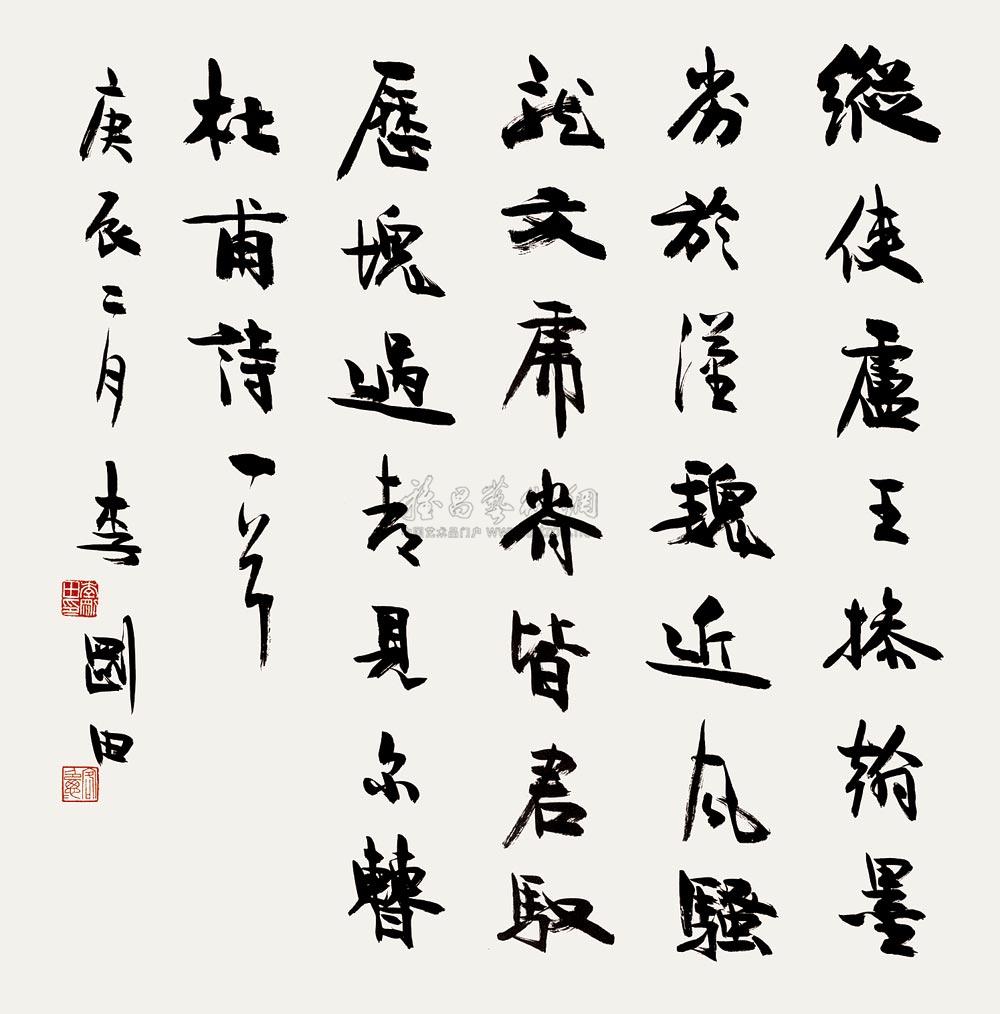 縱使盧王操翰墨
劣於漢魏近風騷
龍文虎脊皆君馭
歷塊過都見尔曹
杜甫詩一首
庚辰二月李國田
中国艺术品门户